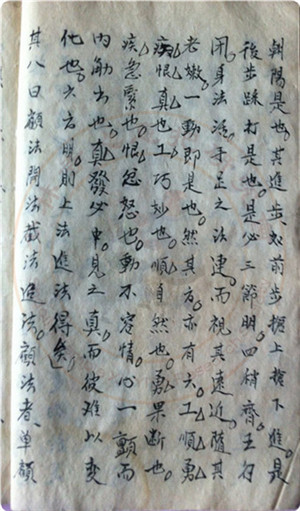 朝陽是也。其進步，如前步搶上搶下進。是
後步踩打是也。是必三節明，四梢齊，五行
閉，身法活，手足之法連，而視其遠近，隨其
老嫩，一動即是也。然其方亦有六：工、順、勇、
疾、恨、真也。工，巧妙也。順，自然也。勇，果斷也。
疾，急緊也。恨，忿怒也。動不容情，心一顫而
內勁出也。真，發必中見之真，而彼難以變
化也。六方明，則上法進法得矣。
其八曰顧法開法截法追法。顧法者，單顧